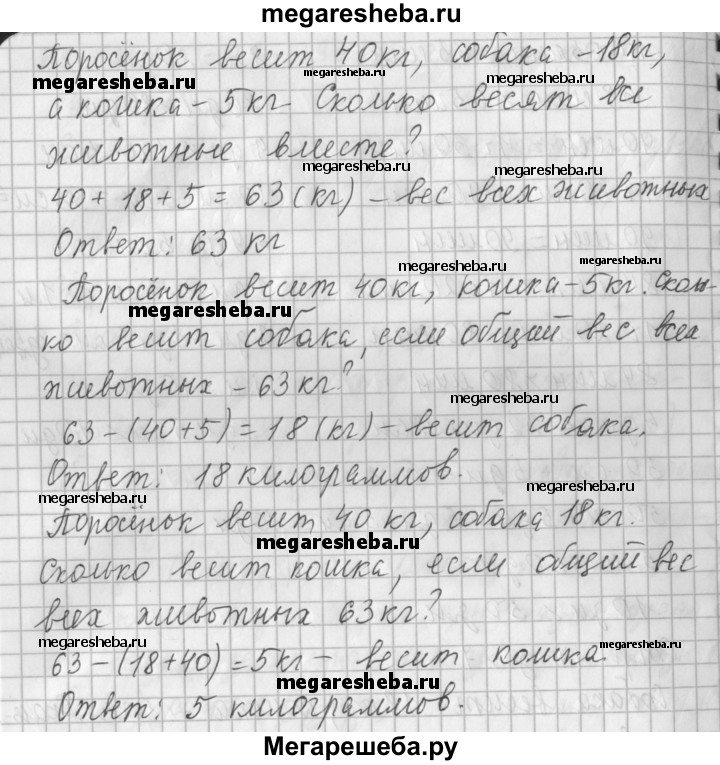 megaresheba.ru
Поросёнок весит 40 кг, собака - 18 кг,
megaresheba.ru
megaresheba.ru
megaresheba.ru
а кошка - 5 кг. Сколько весят все
животные вместе?
megaresheba.ru
megaresheba.ru
40 + 18 + 5 = 63 (кг) - вес всех животных
Ответ: 63 кг
megaresheba.ru
Поросёнок весит 40 кг, кошка - 5 кг. Сколь-
megaresheba.ru
ко весит собака, если общий вес всех
животных - 63 кг?
megaresheba.ru
63 - (40 + 5) = 18 (кг) - весит собака.
Ответ: 18 килограммов.
megaresheba.ru
megaresheba.ru
Поросёнок весит 40 кг, собака 18 кг.
megaresheba.ru
Сколько весит кошка, если общий вес
всех животных 63 кг?
megaresheba.ru
megaresheba.ru
63 - (18 + 40) = 5 кг - весит кошка.
megaresheba.ru
Ответ: 5 килограммов.
Мегарешеба.ру